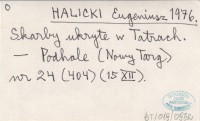 0
HALICKI Eugeniusz 1976.
Skarby ukryte w Tatrach.
— Podhale (Nowy Targ)
nr 24 (404) (15 XII).